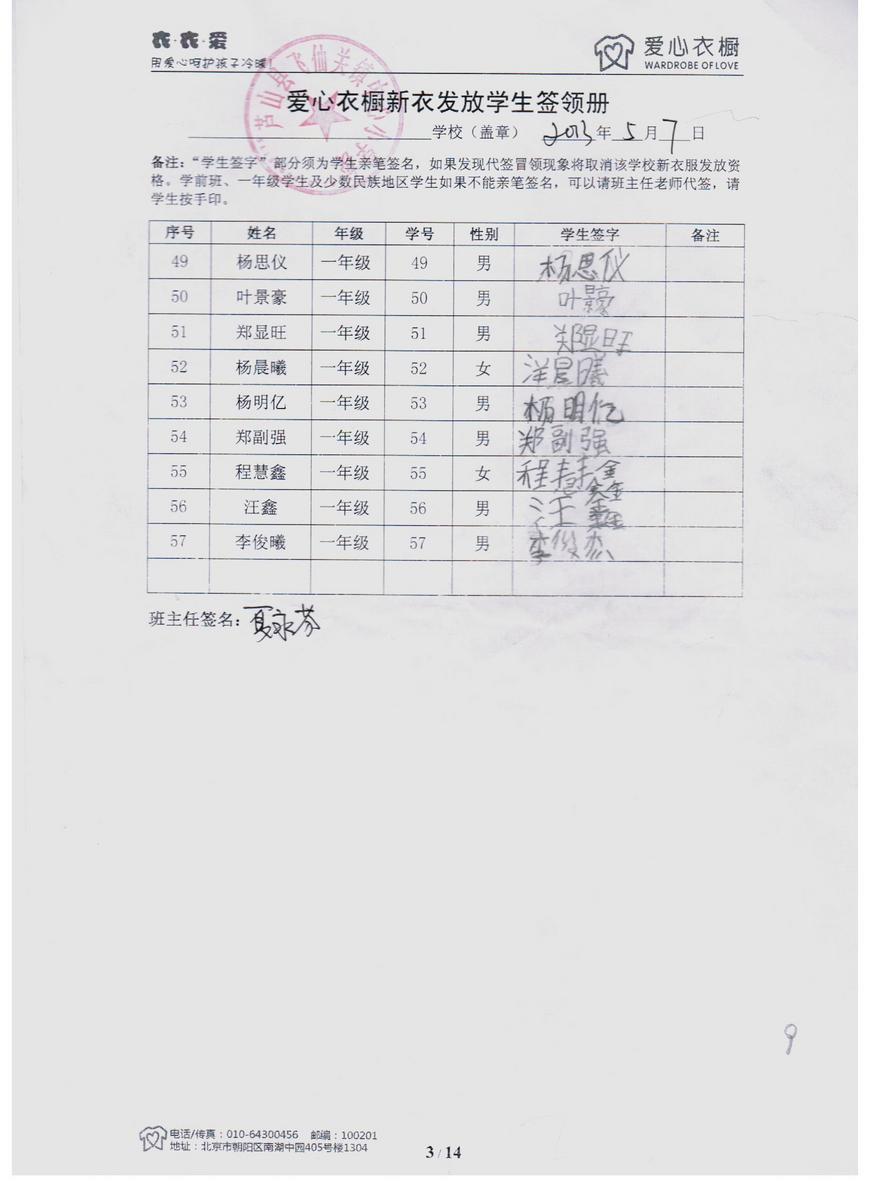 衣·衣·爱
用爱心呵护孩子冷暖!
爱心衣橱
WARDROBE OF LOVE
芦山县飞仙关镇中心小学校
爱心衣橱新衣发放学生签领册
学校（盖章） 2013年5月7日
备注：“学生签字”部分须为学生亲笔签名，如果发现代签冒领现象将取消该学校新衣服发放资
格。学前班、一年级学生及少数民族地区学生如果不能亲笔签名，可以请班主任老师代签，请
学生按手印。
序号 姓名 年级 学号 性别 学生签字 备注
49 杨思仪 一年级 49 男 杨思仪
50 叶景豪 一年级 50 男 叶景豪
51 郑显旺 一年级 51 男 郑显旺
52 杨晨曦 一年级 52 女 洋晨曦
53 杨明亿 一年级 53 男 杨明亿
54 郑副强 一年级 54 男 郑副强
55 程慧鑫 一年级 55 女 程慧鑫
56 汪鑫 一年级 56 男 汪鑫
57 李俊曦 一年级 57 男 李俊
班主任签名：夏永芬
9
电话/传真：010-64300456 邮编：100201
地址：北京市朝阳区南湖中园405号楼1304
3 / 14